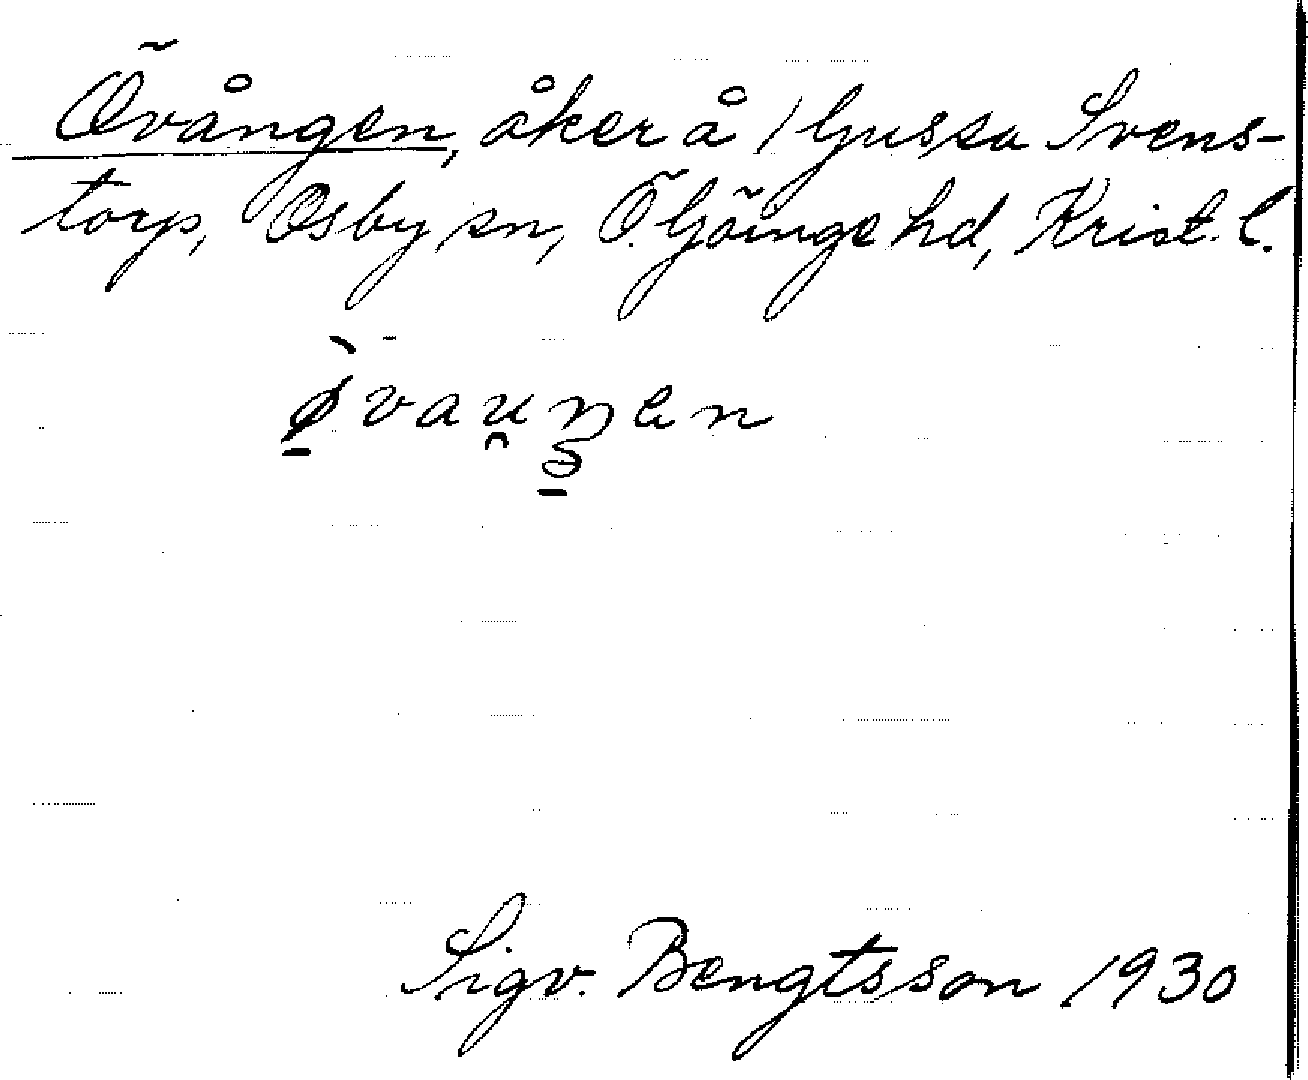 Övången, åker å 1 Gussa Svens-
torp, Osby sn, Ö. Göinge hd, Krist. l.
Sigv. Bengtsson 1930